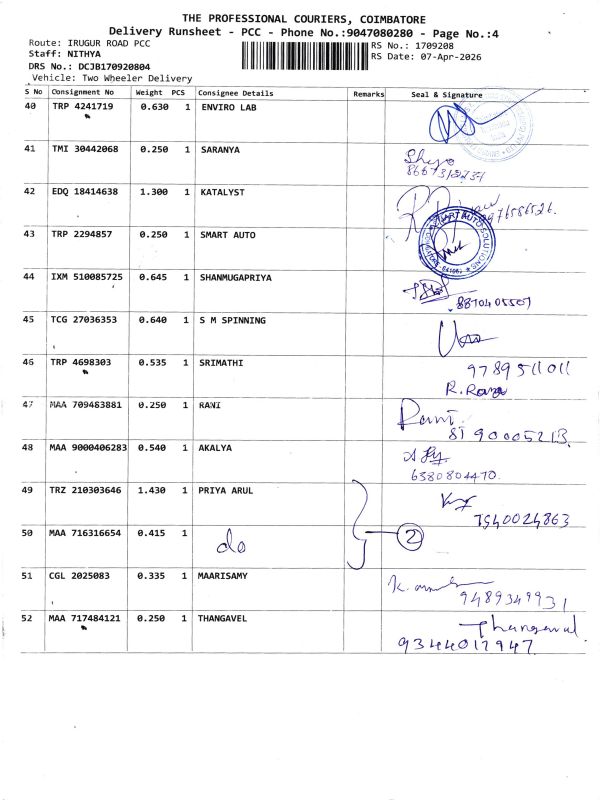 THE PROFESSIONAL COURIERS, COIMBATORE
Delivery Runsheet - PCC - Phone No.:9047080280 - Page No.:4
Route: IRUGUR ROAD PCC
RS No.: 1709208
Staff: NITHYA
RS Date: 07-Apr-2026
DRS No.: DCJB170920804
Vehicle: Two Wheeler Delivery
S No Consignment No Weight PCS Consignee Details Remarks Seal & Signature
40 TRP 4241719 0.630 1 ENVIRO LAB
41 TMI 30442068 0.250 1 SARANYA
42 EDQ 18414638 1.300 1 KATALYST
43 TRP 2294857 0.250 1 SMART AUTO
44 IXM 510085725 0.645 1 SHANMUGAPRIYA
8870405507
45 TCG 27036353 0.640 1 S M SPINNING
46 TRP 4698303 0.535 1 SRIMATHI
9789511011
47 MAA 709483881 0.250 1 RANI
Rani
8190005213
48 MAA 9000406283 0.540 1 AKALYA
6380804470.
49 TRZ 210303646 1.430 1 PRIYA ARUL
7540024863
50 MAA 716316654 0.415 1 do 2
51 CGL 2025083 0.335 1 MAARISAMY
9489349931
52 MAA 717484121 0.250 1 THANGAVEL
Thangavel
9344017947